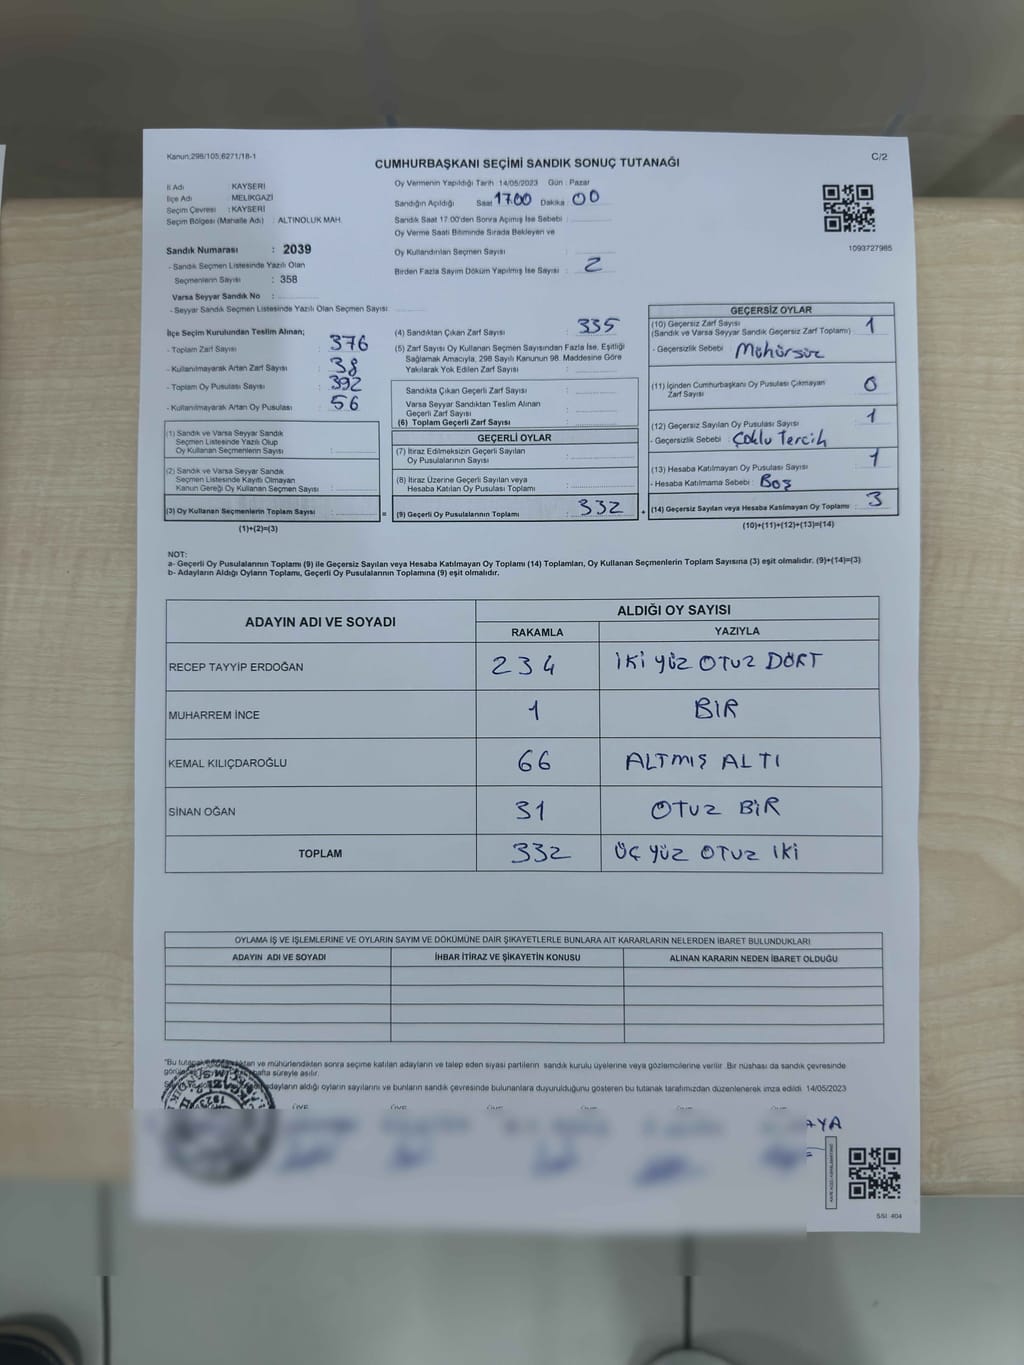 Kanun:298/105;6271/18-1
C/2
CUMHURBAŞKANI SEÇİMİ SANDIK SONUÇ TUTANAĞI
İl Adı : KAYSERİ
İlçe Adı : MELİKGAZİ
Seçim Çevresi : KAYSERİ
Seçim Bölgesi (Mahalle Adı) : ALTINOLUK MAH.
Sandık Numarası : 2039
- Sandık Seçmen Listesinde Yazılı Olan
Seçmenlerin Sayısı : 358
Varsa Seyyar Sandık No :
- Seyyar Sandık Seçmen Listesinde Yazılı Olan Seçmen Sayısı :
Oy Vermenin Yapıldığı Tarih 14/05/2023 Gün : Pazar
Sandığın Açıldığı Saat 17.00 Dakika : 00
Sandık Saat 17.00'den Sonra Açımış İse Sebebi :
Oy Verme Saati Bitiminde Sırada Bekleyen ve
Oy Kullandırılan Seçmen Sayısı :
Birden Fazla Sayım Döküm Yapılmış İse Sayısı : 2
1093727985
İlçe Seçim Kurulundan Teslim Alınan;
- Toplam Zarf Sayısı : 376
- Kullanılmayarak Artan Zarf Sayısı : 38
- Toplam Oy Pusulası Sayısı : 392
- Kullanılmayarak Artan Oy Pusulası : 56
(1) Sandık ve Varsa Seyyar Sandık
Seçmen Listesinde Yazılı Olup
Oy Kullanan Seçmenlerin Sayısı :
(2) Sandık ve Varsa Seyyar Sandık
Seçmen Listesinde Kayıtlı Olmayan
Kanun Gereği Oy Kullanan Seçmen Sayısı :
(3) Oy Kullanan Seçmenlerin Toplam Sayısı :
(1)+(2)=(3)
(4) Sandıktan Çıkan Zarf Sayısı : 335
(5) Zarf Sayısı Oy Kullanan Seçmen Sayısından Fazla İse, Eşitliği
Sağlamak Amacıyla, 298 Sayılı Kanunun 98. Maddesine Göre
Yakılarak Yok Edilen Zarf Sayısı :
Sandıkta Çıkan Geçerli Zarf Sayısı :
Varsa Seyyar Sandıktan Teslim Alınan
Geçerli Zarf Sayısı :
(6) Toplam Geçerli Zarf Sayısı :
GEÇERLİ OYLAR
(7) İtiraz Edilmeksizin Geçerli Sayılan
Oy Pusulalarının Sayısı :
(8) İtiraz Üzerine Geçerli Sayılan veya
Hesaba Katılan Oy Pusulası Toplamı :
= (9) Geçerli Oy Pusulalarının Toplamı : 332 +
GEÇERSİZ OYLAR
(10) Geçersiz Zarf Sayısı
(Sandık ve Varsa Seyyar Sandık Geçersiz Zarf Toplamı) : 1
- Geçersizlik Sebebi : Mühürsüz
(11) İçinden Cumhurbaşkanı Oy Pusulası Çıkmayan
Zarf Sayısı : 0
(12) Geçersiz Sayılan Oy Pusulası Sayısı : 1
- Geçersizlik Sebebi : Çoklu Tercih
(13) Hesaba Katılmayan Oy Pusulası Sayısı : 1
- Hesaba Katılmama Sebebi : Boş
(14) Geçersiz Sayılan veya Hesaba Katılmayan Oy Toplamı : 3
(10)+(11)+(12)+(13)=(14)
NOT:
a- Geçerli Oy Pusulalarının Toplamı (9) ile Geçersiz Sayılan veya Hesaba Katılmayan Oy Toplamı (14) Toplamları, Oy Kullanan Seçmenlerin Toplam Sayısına (3) eşit olmalıdır. (9)+(14)=(3)
b- Adayların Aldığı Oyların Toplamı, Geçerli Oy Pusulalarının Toplamına (9) eşit olmalıdır.
ADAYIN ADI VE SOYADI
ALDIĞI OY SAYISI
RAKAMLA YAZIYLA
RECEP TAYYİP ERDOĞAN 234 İKİ YÜZ OTUZ DÖRT
MUHARREM İNCE 1 BİR
KEMAL KILIÇDAROĞLU 66 ALTMIŞ ALTI
SİNAN OĞAN 31 OTUZ BİR
TOPLAM 332 ÜÇ YÜZ OTUZ İKİ
OYLAMA İŞ VE İŞLEMLERİNE VE OYLARIN SAYIM VE DÖKÜMÜNE DAİR ŞİKAYETLERLE BUNLARA AİT KARARLARIN NELERDEN İBARET BULUNDUKLARI
ADAYIN ADI VE SOYADI İHBAR İTİRAZ VE ŞİKAYETİN KONUSU ALINAN KARARIN NEDEN İBARET OLDUĞU
"Bu ve mühürlendikten sonra seçime katılan adayların ve talep eden siyasi partilerin sandık kurulu üyelerine veya gözlemcilerine verilir. Bir nüshası da sandık çevresinde
süreyle asılır.
adayların aldığı oyların sayılarını ve bunların sandık çevresinde bulunanlara duyurulduğunu gösteren bu tutanak tarafımızdan düzenlenerek imza edildi. 14/05/2023
SSI 404